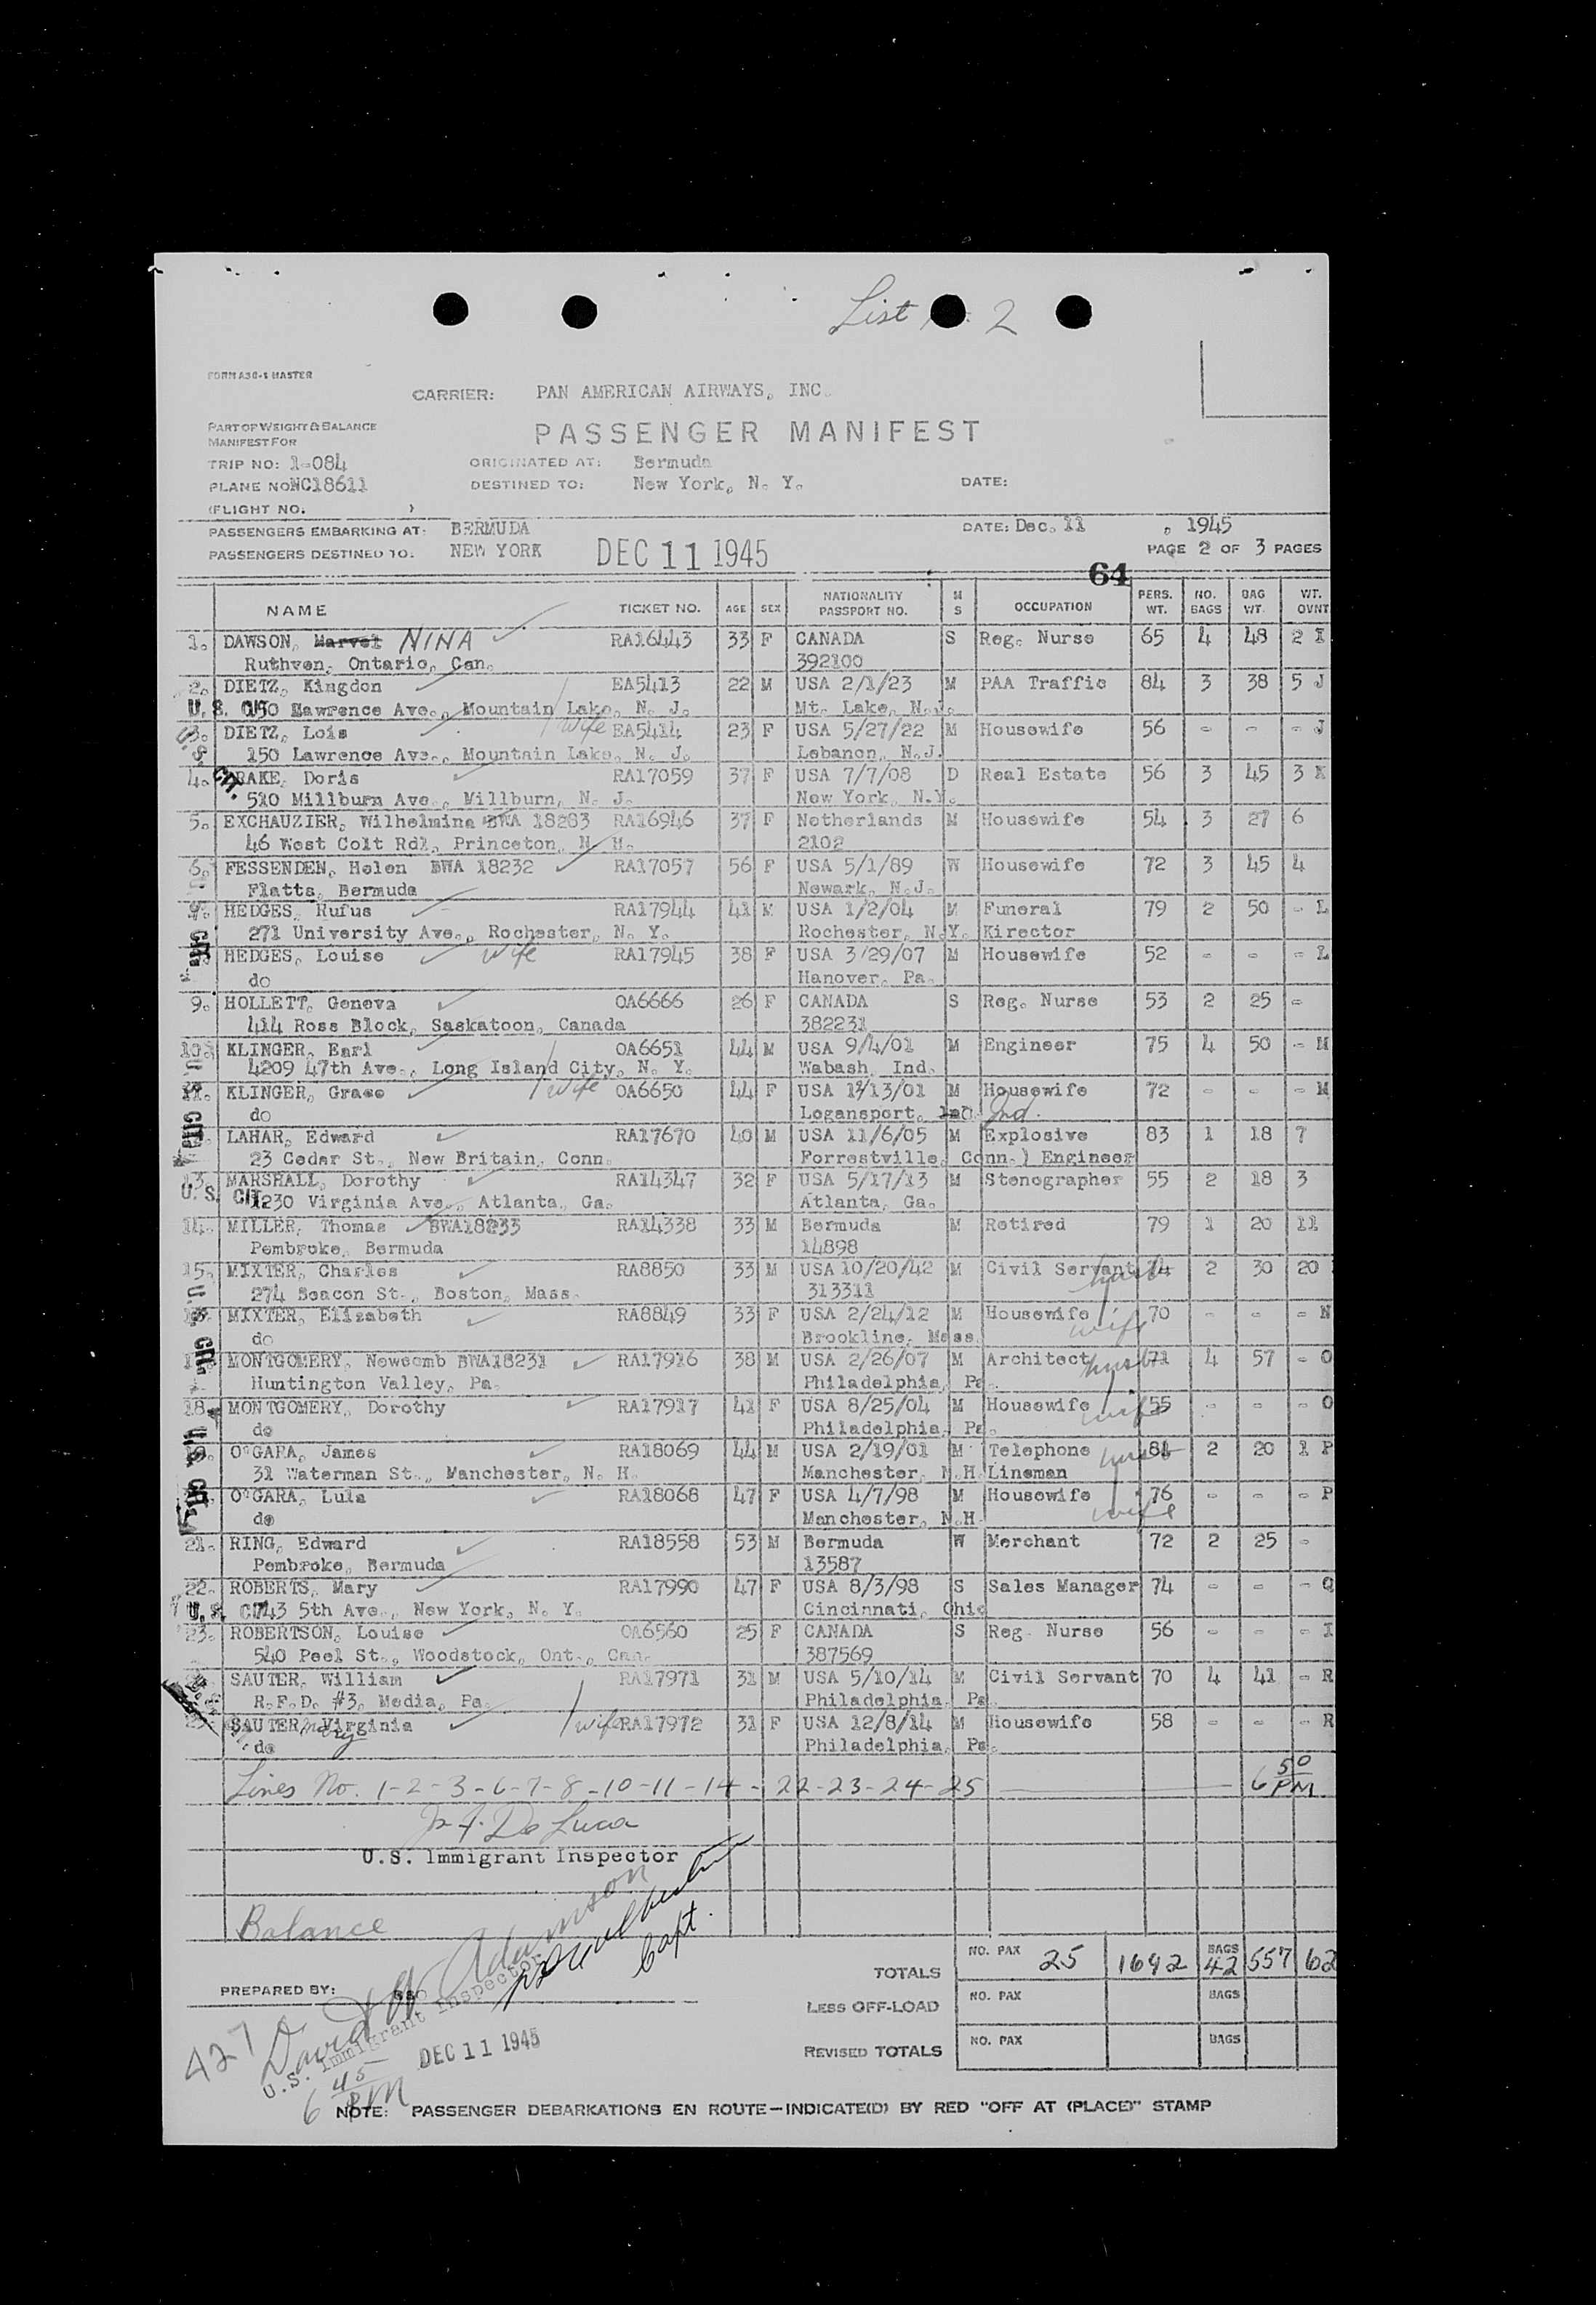 List 2
FORM A30-1 MASTER
CARRIER: PAN AMERICAN AIRWAYS, INC.
PART OF WEIGHT & BALANCE
MANIFEST FOR
PASSENGER MANIFEST
TRIP NO: 1-084 ORIGINATED AT: Bermuda
PLANE NO NC18611 DESTINED TO: New York, N. Y. DATE:
(FLIGHT NO. )
PASSENGERS EMBARKING AT: BERMUDA DATE: Dec. 11, 1945
PASSENGERS DESTINED TO: NEW YORK DEC 11 1945 PAGE 2 OF 3 PAGES
64
NAME TICKET NO. AGE SEX NATIONALITY PASSPORT NO. M S OCCUPATION PERS. WT. NO. BAGS BAG WT. WT. OVNT
1. DAWSON, Marvel NINA RA16443 33 F CANADA S Reg. Nurse 65 4 48 2 I
Ruthven, Ontario, Can. 392100
2. DIETZ, Kingdon EA5413 22 M USA 2/1/23 M PAA Traffic 84 3 38 5 J
U.S. CIT 150 Lawrence Ave., Mountain Lake, N. J. Mt. Lake, N.J.
3. DIETZ, Lois wife EA5414 23 F USA 5/27/22 M Housewife 56 - - - J
U.S. 150 Lawrence Ave., Mountain Lake, N. J. Lebanon, N.J.
4. DRAKE, Doris RA17059 37 F USA 7/7/08 D Real Estate 56 3 45 3 K
CIT. 510 Millburn Ave., Millburn, N. J. New York, N.Y.
5. EXCHAUZIER, Wilhelmina BWA 18283 RA16946 37 F Netherlands M Housewife 54 3 27 6
46 West Colt Rd., Princeton, N. H. 2102
6. FESSENDEN, Helen BWA 18232 RA17057 56 F USA 5/1/89 W Housewife 72 3 45 4
Flatts, Bermuda Newark, N.J.
7. HEDGES, Rufus RA17944 41 M USA 1/2/04 M Funeral 79 2 50 - L
271 University Ave., Rochester, N. Y. Rochester, N.Y. Kirector
HEDGES, Louise wife RA17945 38 F USA 3/29/07 M Housewife 52 - - - L
do Hanover, Pa.
9. HOLLETT, Geneva OA6666 26 F CANADA S Reg. Nurse 53 2 25 -
414 Ross Block, Saskatoon, Canada 382231
10. KLINGER, Earl OA6651 44 M USA 9/4/01 M Engineer 75 4 50 - M
4209 47th Ave., Long Island City, N. Y. Wabash, Ind.
11. KLINGER, Grace wife OA6650 44 F USA 12/13/01 M Housewife 72 - - - M
do Logansport, Ind.
LAHAR, Edward RA17670 40 M USA 11/6/05 M Explosive 83 1 18 7
23 Cedar St., New Britain, Conn. Forrestville, Conn.) Engineer
13. MARSHALL, Dorothy RA14347 32 F USA 5/17/13 M Stenographer 55 2 18 3
U.S. CIT 1230 Virginia Ave., Atlanta, Ga. Atlanta, Ga.
14. MILLER, Thomas BWA18233 RA14338 33 M Bermuda M Retired 79 1 20 11
Pembroke, Bermuda 14898
15. MIXTER, Charles RA8850 33 M USA 10/20/42 M Civil Servant husb 74 2 30 20
274 Beacon St., Boston, Mass. 313311
MIXTER, Elizabeth RA8849 33 F USA 2/24/12 M Housewife 70 - - - N
do Brookline, Mass. wife
MONTGOMERY, Newcomb BWA18231 RA17916 38 M USA 2/26/07 M Architect husb 71 4 57 - O
Huntington Valley, Pa. Philadelphia, Pa.
18. MONTGOMERY, Dorothy RA17917 41 F USA 8/25/04 M Housewife wife 55 - - - O
do Philadelphia, Pa.
O'GARA, James RA18069 44 M USA 2/19/01 M Telephone husb 81 2 20 1 P
31 Waterman St., Manchester, N. H. Manchester, N.H. Lineman
O'GARA, Lula RA18068 47 F USA 4/7/98 M Housewife 76 - - - P
do Manchester, N.H. wife
21. RING, Edward RA18558 53 M Bermuda W Merchant 72 2 25 -
Pembroke, Bermuda 13587
22. ROBERTS, Mary RA17990 47 F USA 8/3/98 S Sales Manager 74 - - - Q
U.S. CIT 743 5th Ave., New York, N. Y. Cincinnati, Ohio
23. ROBERTSON, Louise OA6560 25 F CANADA S Reg. Nurse 56 - - - I
540 Peel St., Woodstock, Ont., Can. 387569
SAUTER, William RA17971 31 M USA 5/10/14 M Civil Servant 70 4 41 - R
R.F.D. #3, Media, Pa. Philadelphia, Pa.
SAUTER, Mary Virginia wife RA17972 31 F USA 12/8/14 M Housewife 58 - - - R
do Philadelphia, Pa.
Lines No. 1-2-3-6-7-8-10-11-14-22-23-24-25 6 50 PM
De Luca
U.S. Immigrant Inspector
Balance
NO. PAX 25 1692 BAGS 42 557 62
TOTALS
PREPARED BY: David W Adamson Capt.
U.S. Immigrant Inspector
LESS OFF-LOAD NO. PAX BAGS
427 DEC 11 1945
REVISED TOTALS NO. PAX BAGS
6 45 PM
NOTE: PASSENGER DEBARKATIONS EN ROUTE—INDICATE(D) BY RED "OFF AT (PLACE)" STAMP